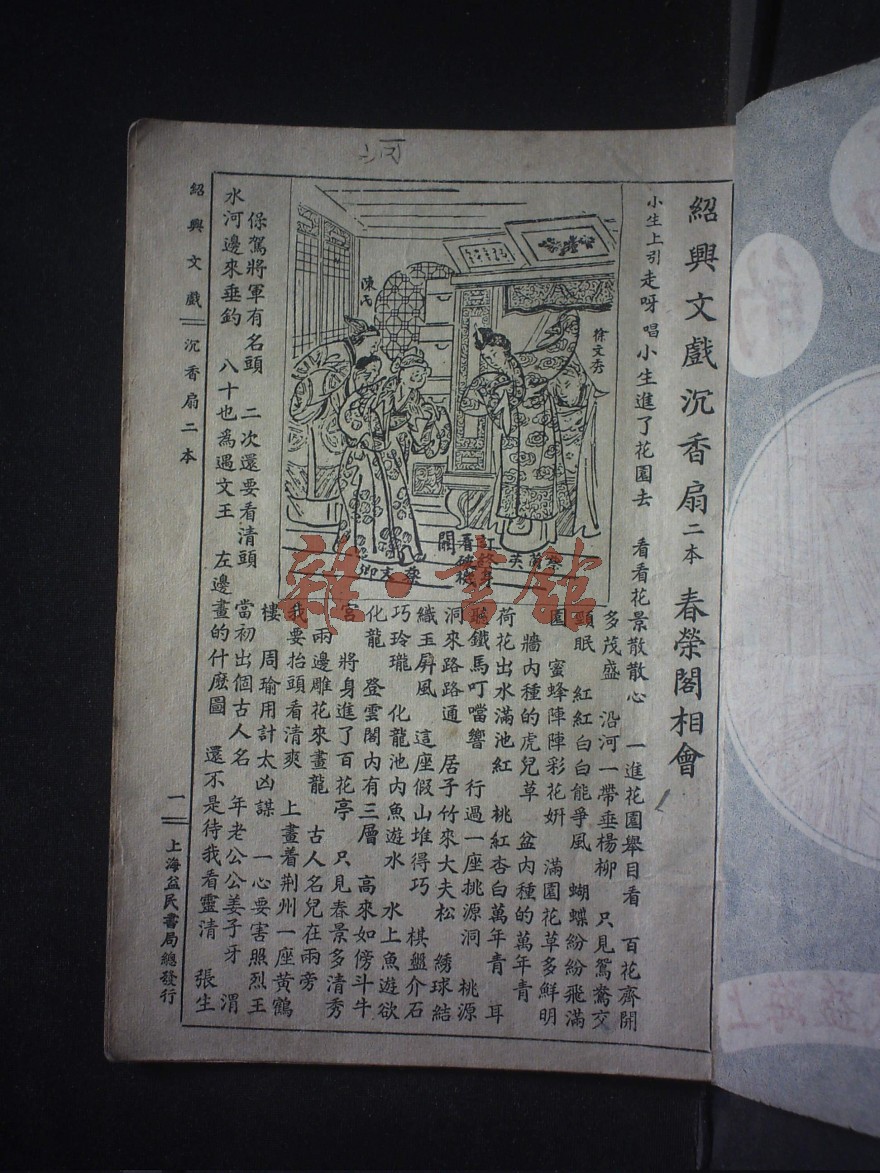 紹興文戲沉香扇二本　春榮閣相會
小生上引走呀唱　小生進了花園去　看看花景散散心　一進花園舉目看　百花齊開
多茂盛　沿河一帶垂楊柳　只見鴛鴦交
頸眠　紅紅白白能爭風　蝴蝶紛紛飛滿
園　蜜蜂陣陣彩花妍　滿園花草多鮮明
牆內種的虎兒草　盆內種的萬年青
荷花出水滿池紅　桃紅杏白萬年青　耳
聽鐵馬叮噹響　行過一座桃源洞　桃源
洞來路路通　居子竹來大夫松　綉球結
織玉屏風　這座假山堆得巧　棋盤介石
巧玲瓏　化龍池內魚遊水　水上魚遊欲
化龍　登雲閣內有三層　高來如傍斗牛
宮　將身進了百花亭　只見春景多清秀
兩邊雕花來畫龍　古人名兒在兩旁
我要抬頭看清爽　上畫着荆州一座黃鶴
樓　周瑜用計太凶謀　一心要害照烈王
保駕將軍有名頭　二次還要看清頭　當初出個古人名　年老公公姜子牙　渭
水河邊來垂釣　八十也爲遇文王　左邊畫的什麽圖　還不是待我看靈清　張生
徐文秀
陳丙
蔡蘭英
蔡文卿
紹興文戲　沉香扇二本　一　上海益民書局總發行
雜·書館